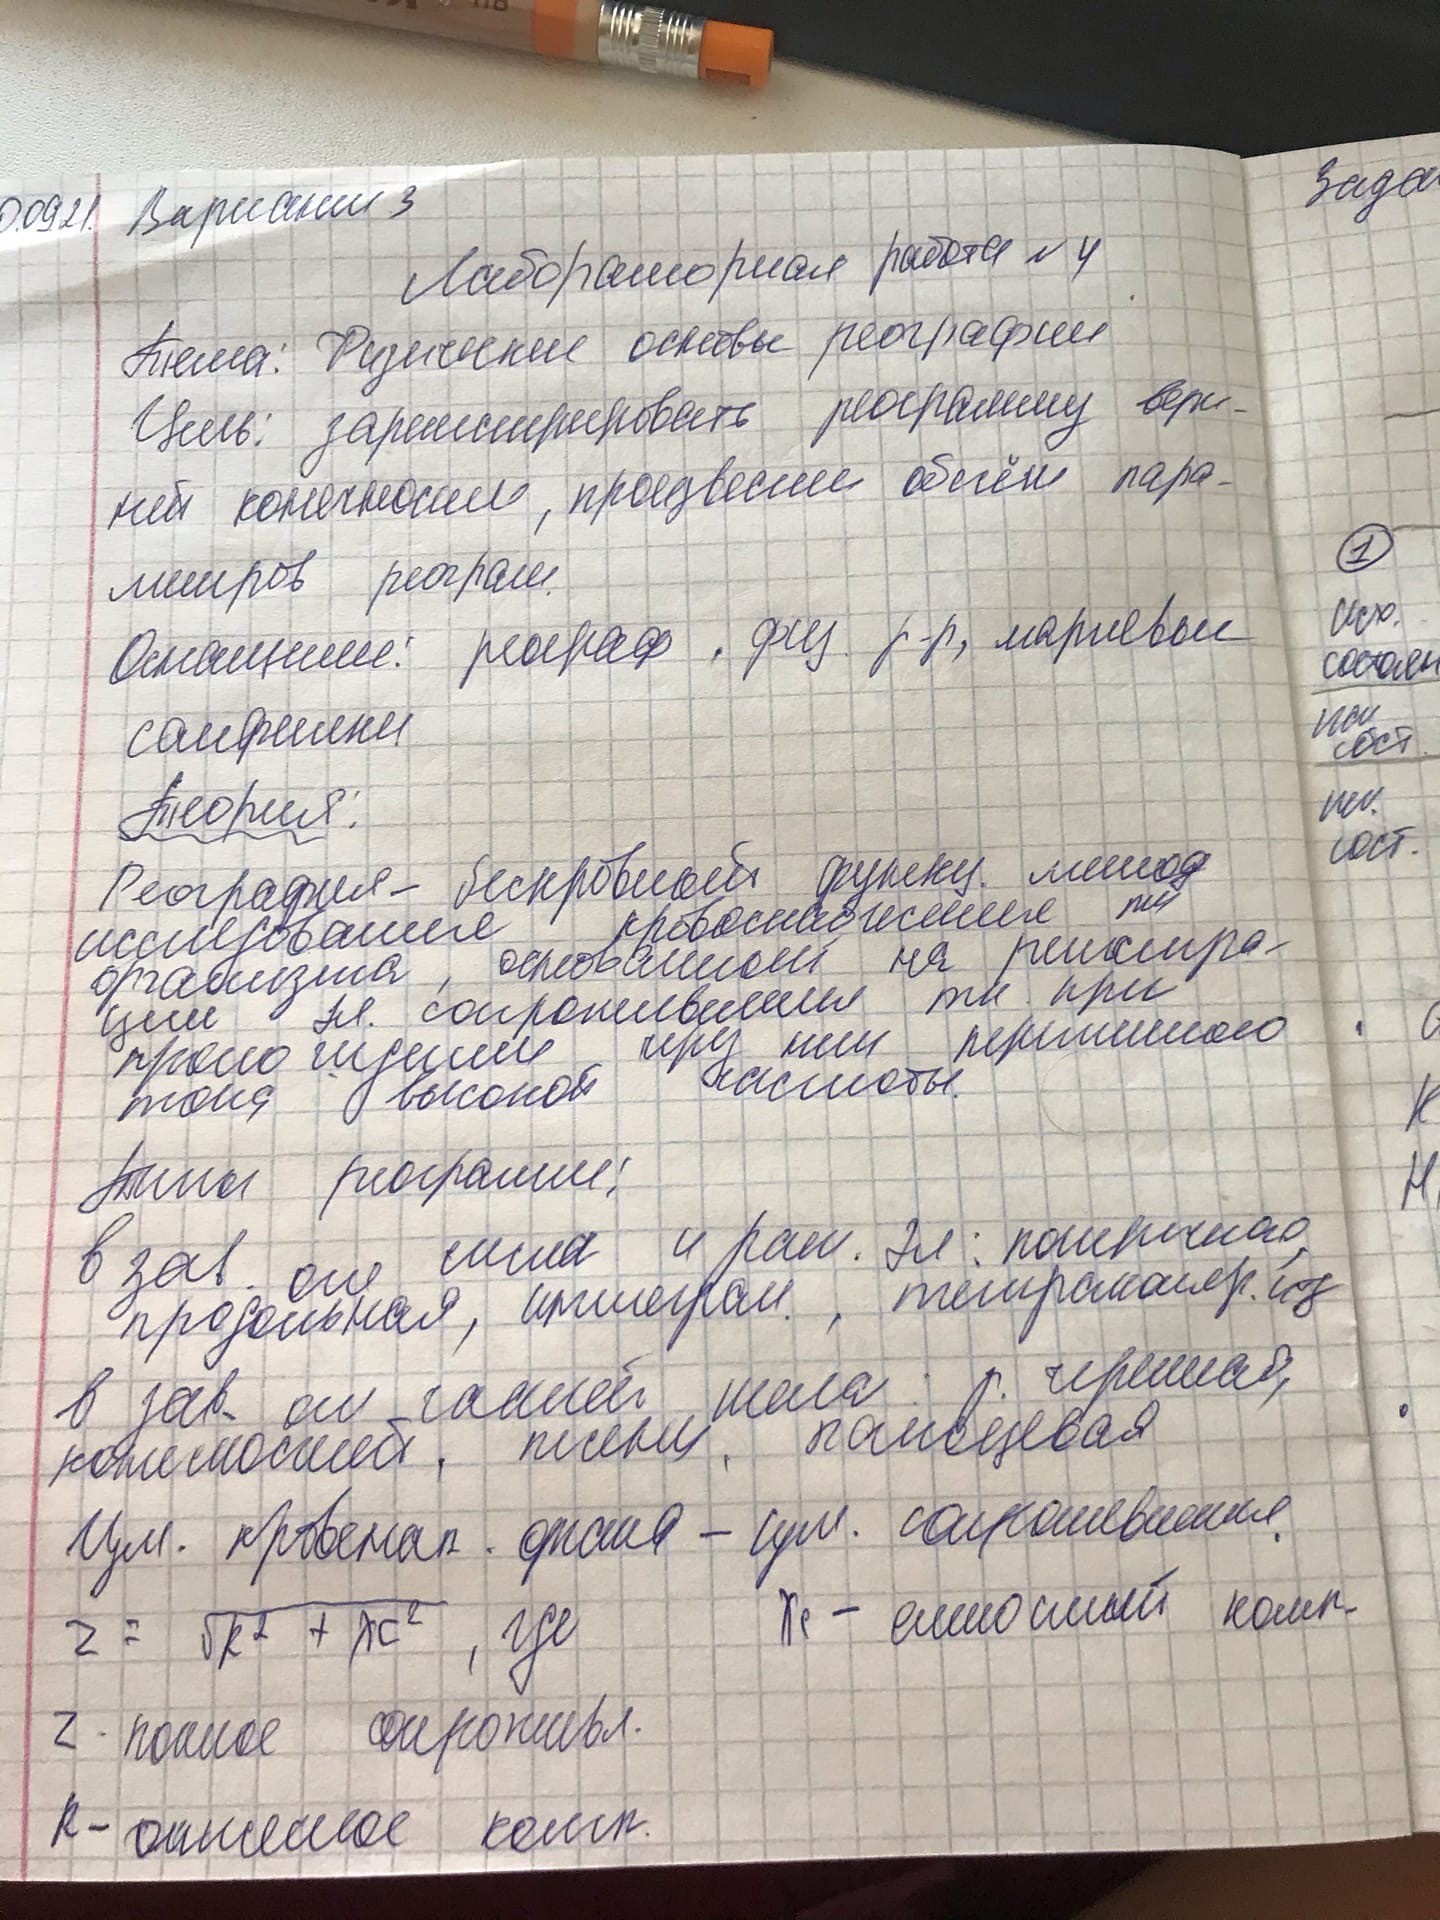 0.0921. Вариант 3
Лабораторная работа № 4
Тема: Физические основы реографии
Цель: зарегистрировать реограмму верх-
ней конечности, произвести обсчёт пара-
метров реограм.
Оснащение: реограф, физ. р-р, марлевые
салфетки
Теория:
Реография – бескровный функц. метод
исследования кровоснабжения тк
организма, основанный на регистра-
ции эл. сопротивления тк. при
прохождении через них переменного
тока высокой частоты.
Типы реограмм:
в зав. от числа и рас. эл: поперечная,
продольная, интеграл., тетраполяр.
в зав. от частей тела: р. черепная,
конечностей, печени, пальцевая
Изм. кровенап. органа – изм. сопротивления.
z = √R² + Xc², где Xc – емкостный комп.
Z - полное сопротивл.
R – активное комп.
Зада
1
исх.
состоян
сост.
сост.